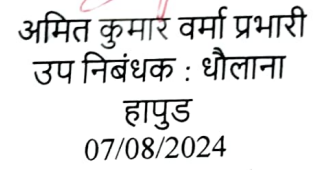 अमित कुमार वर्मा प्रभारी
उप निबंधक : धौलाना
हापुड
07/08/2024